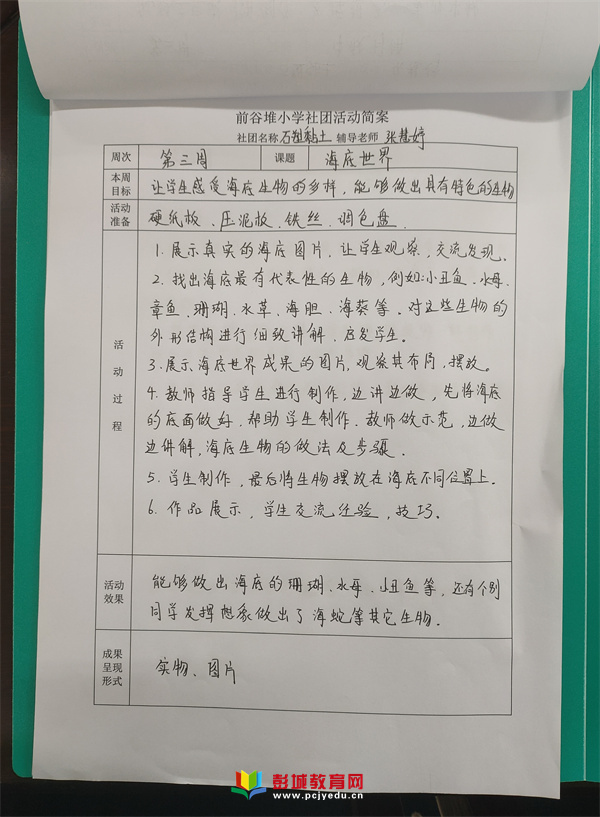 前谷堆小学社团活动简案
社团名称 石塑黏土 辅导老师 张慧婷
周次 第三周 课题 海底世界
本周目标 让学生感受海底生物的多样，能够做出具有特色的生物
活动准备 硬纸板、压泥板、铁丝、调色盘
活动过程
1. 展示真实的海底图片，让学生观察，交流发现。
2. 找出海底最有代表性的生物，例如:小丑鱼、水母、
章鱼、珊瑚、水草、海胆、海葵等。对这些生物的
外形结构进行细致讲解、启发学生。
3. 展示海底世界成果的图片，观察其布局，摆放。
4. 教师指导学生进行制作，边讲边做，先将海底
的底面做好、帮助学生制作、教师做示范，边做
边讲解，海底生物的做法及步骤.
5. 学生制作，最后将生物摆放在海底不同位置上。
6. 作品展示，学生交流经验，技巧。
活动效果
能够做出海底的珊瑚、水母、小丑鱼等，还有个别
同学发挥想象做出了海蛇等其它生物。
成果呈现形式
实物、图片
彭城教育网
www.pcjyedu.cn